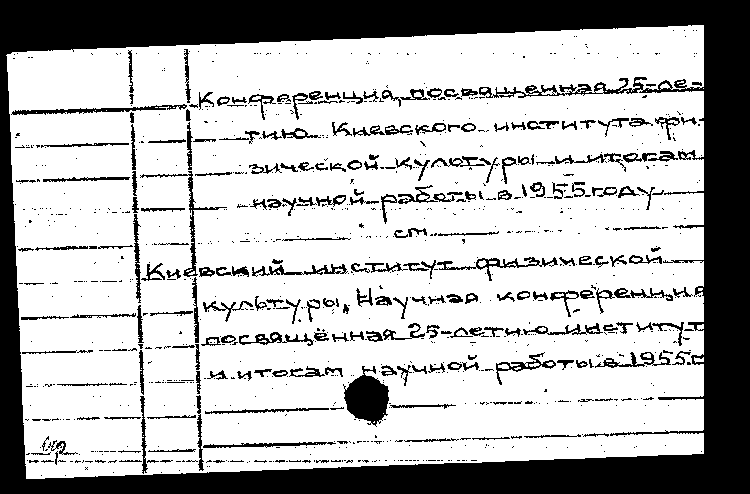 Конференция, посвященная 25-ле-
тию Киевского института фи-
зической культуры и итогам
научной работы в 1955 году
см.
Киевский институт физической
культуры. Научная конференция
посвящённая 25-летию институт
и итогам научной работы в 1955 г